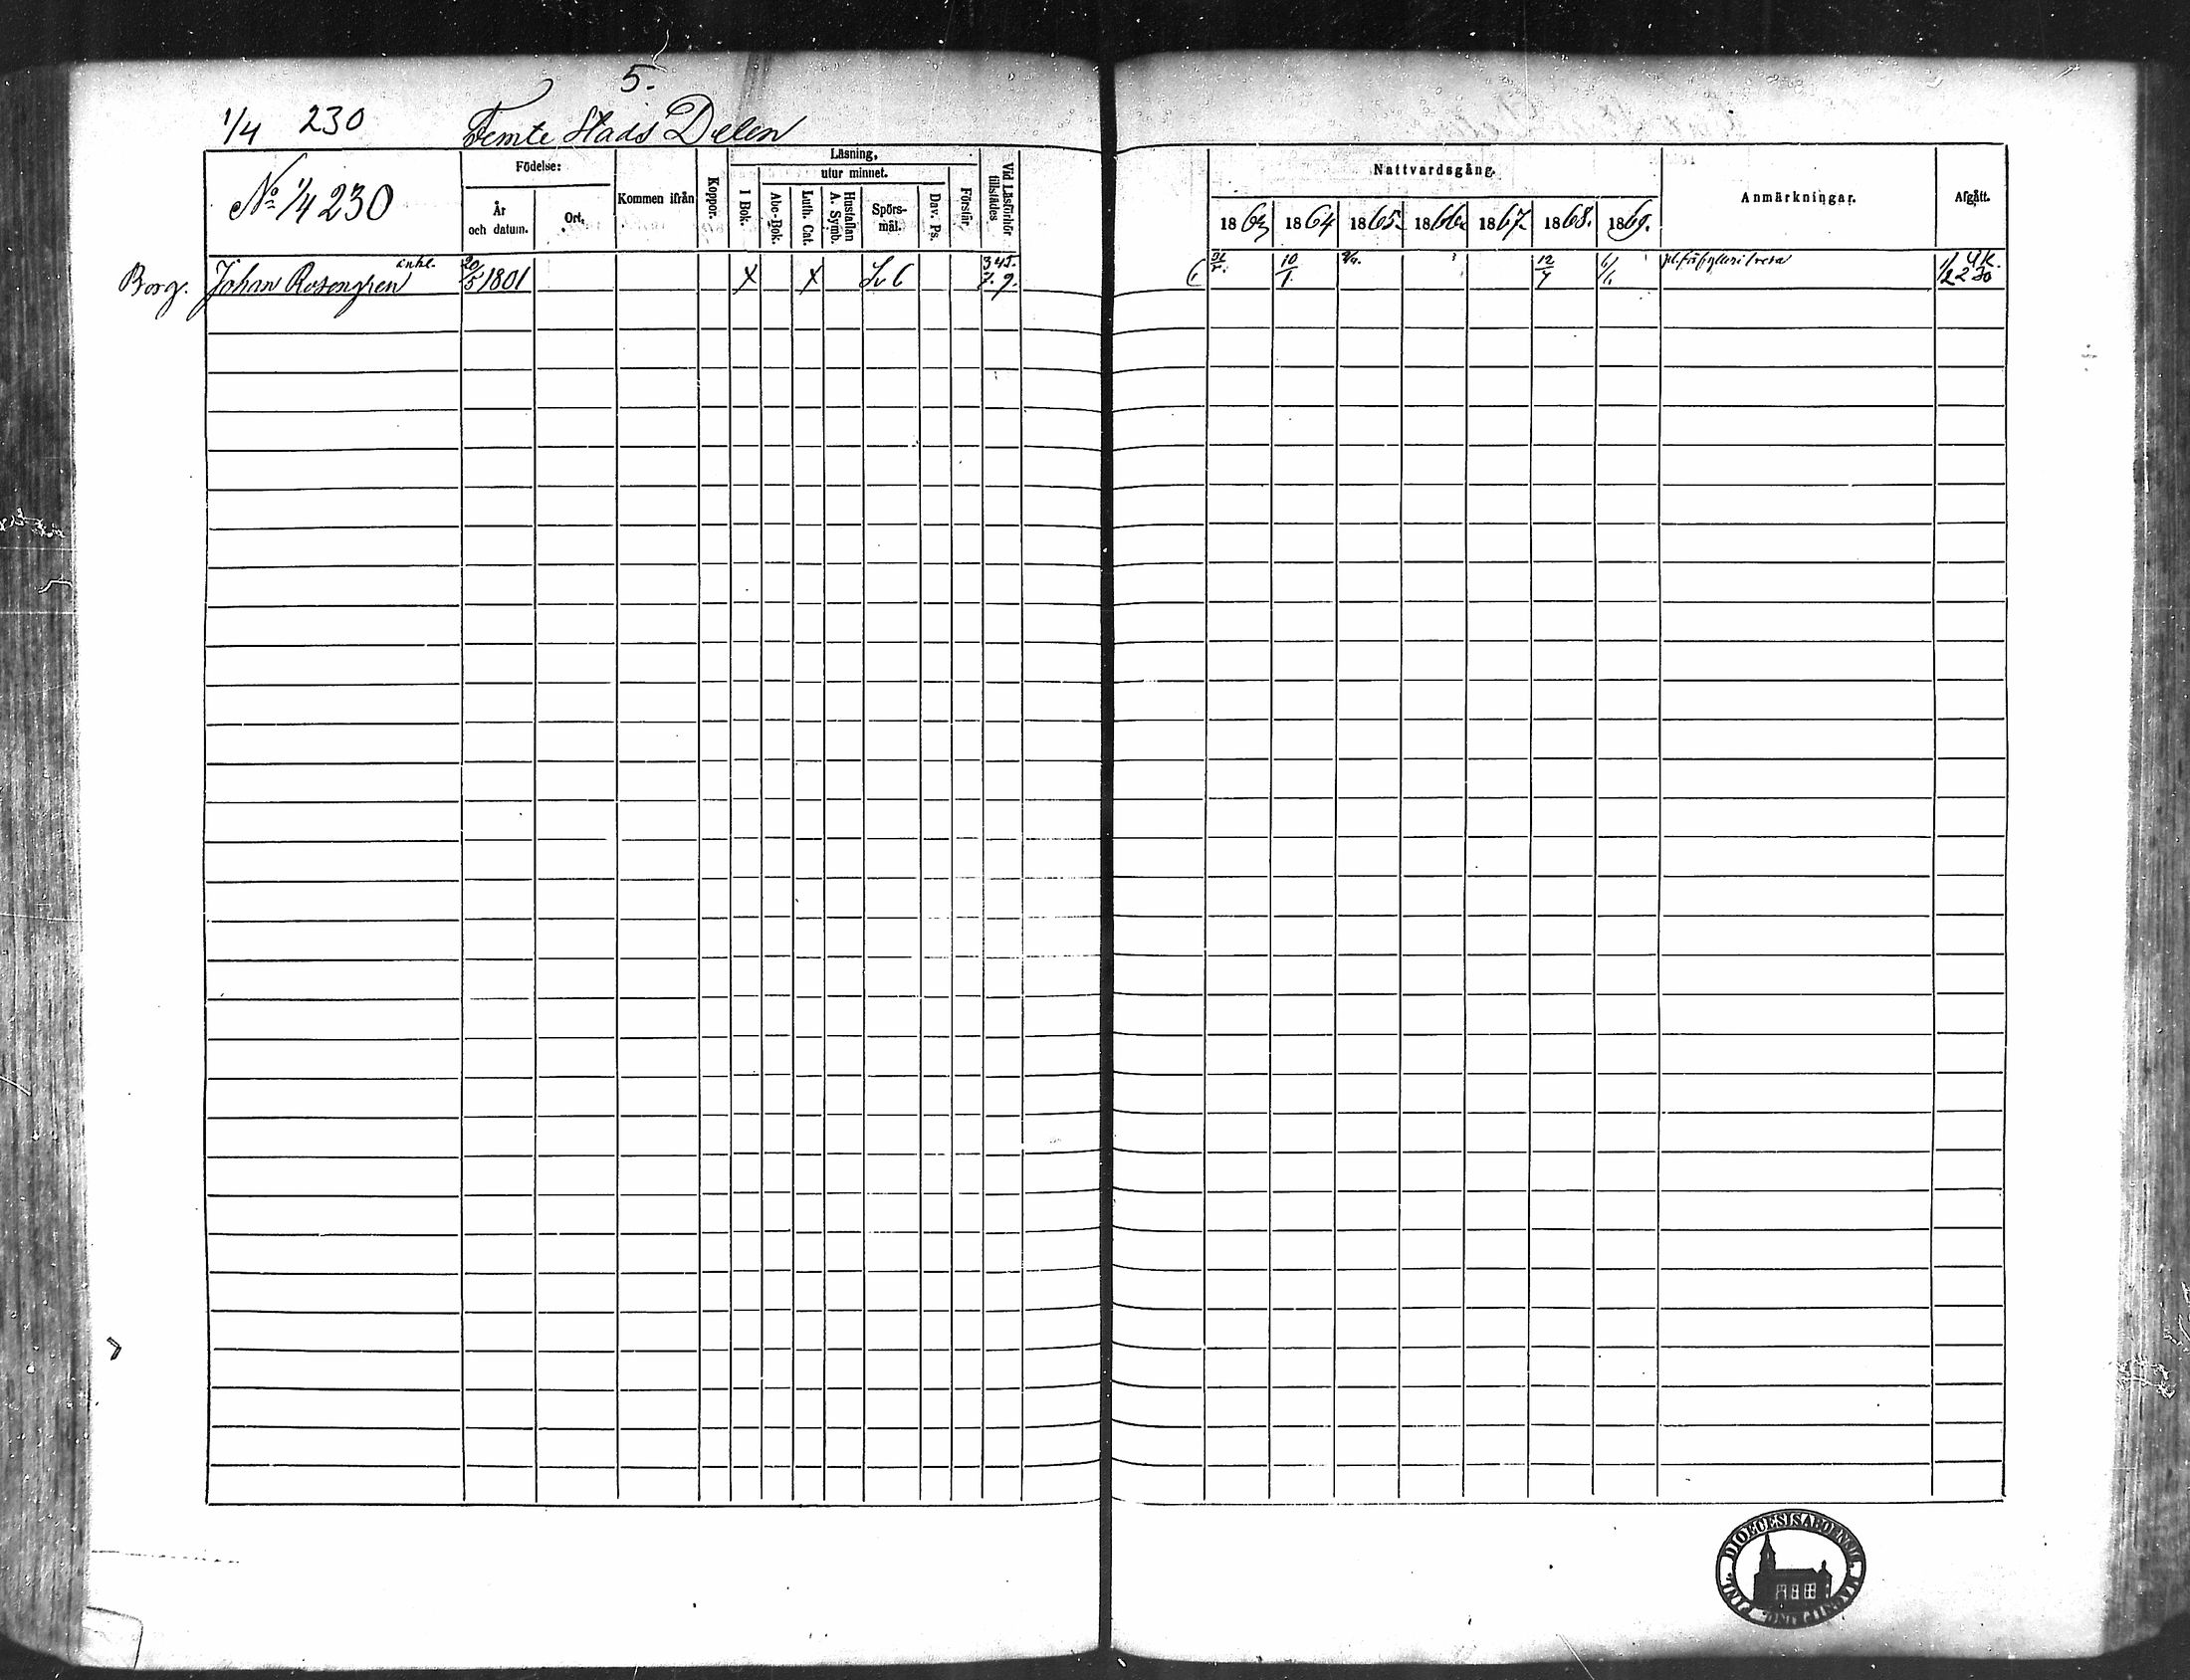 5.
1/4 230 Femte Stads Delen
No 1/4 230
Födelse:
År och datum.
Ort.
Kommen ifrån
Koppor.
Läsning,
I Bok.
utur minnet.
Abc-Bok.
Luth. Cat.
Hustaflan A. Symb.
Spörs-mål.
Dav. Ps.
Förstår.
Vid Läsförhör tillstädes
Nattvardsgång.
1863 1864 1865. 1866. 1867. 1868. 1869.
Anmärkningar.
Afgått.
Borg. Johan Rosengren enkl. 20/5 1801 X X 345. 7. 9. 10/1. 12/4
1/2 230
DIOECESIS ABOENSIS